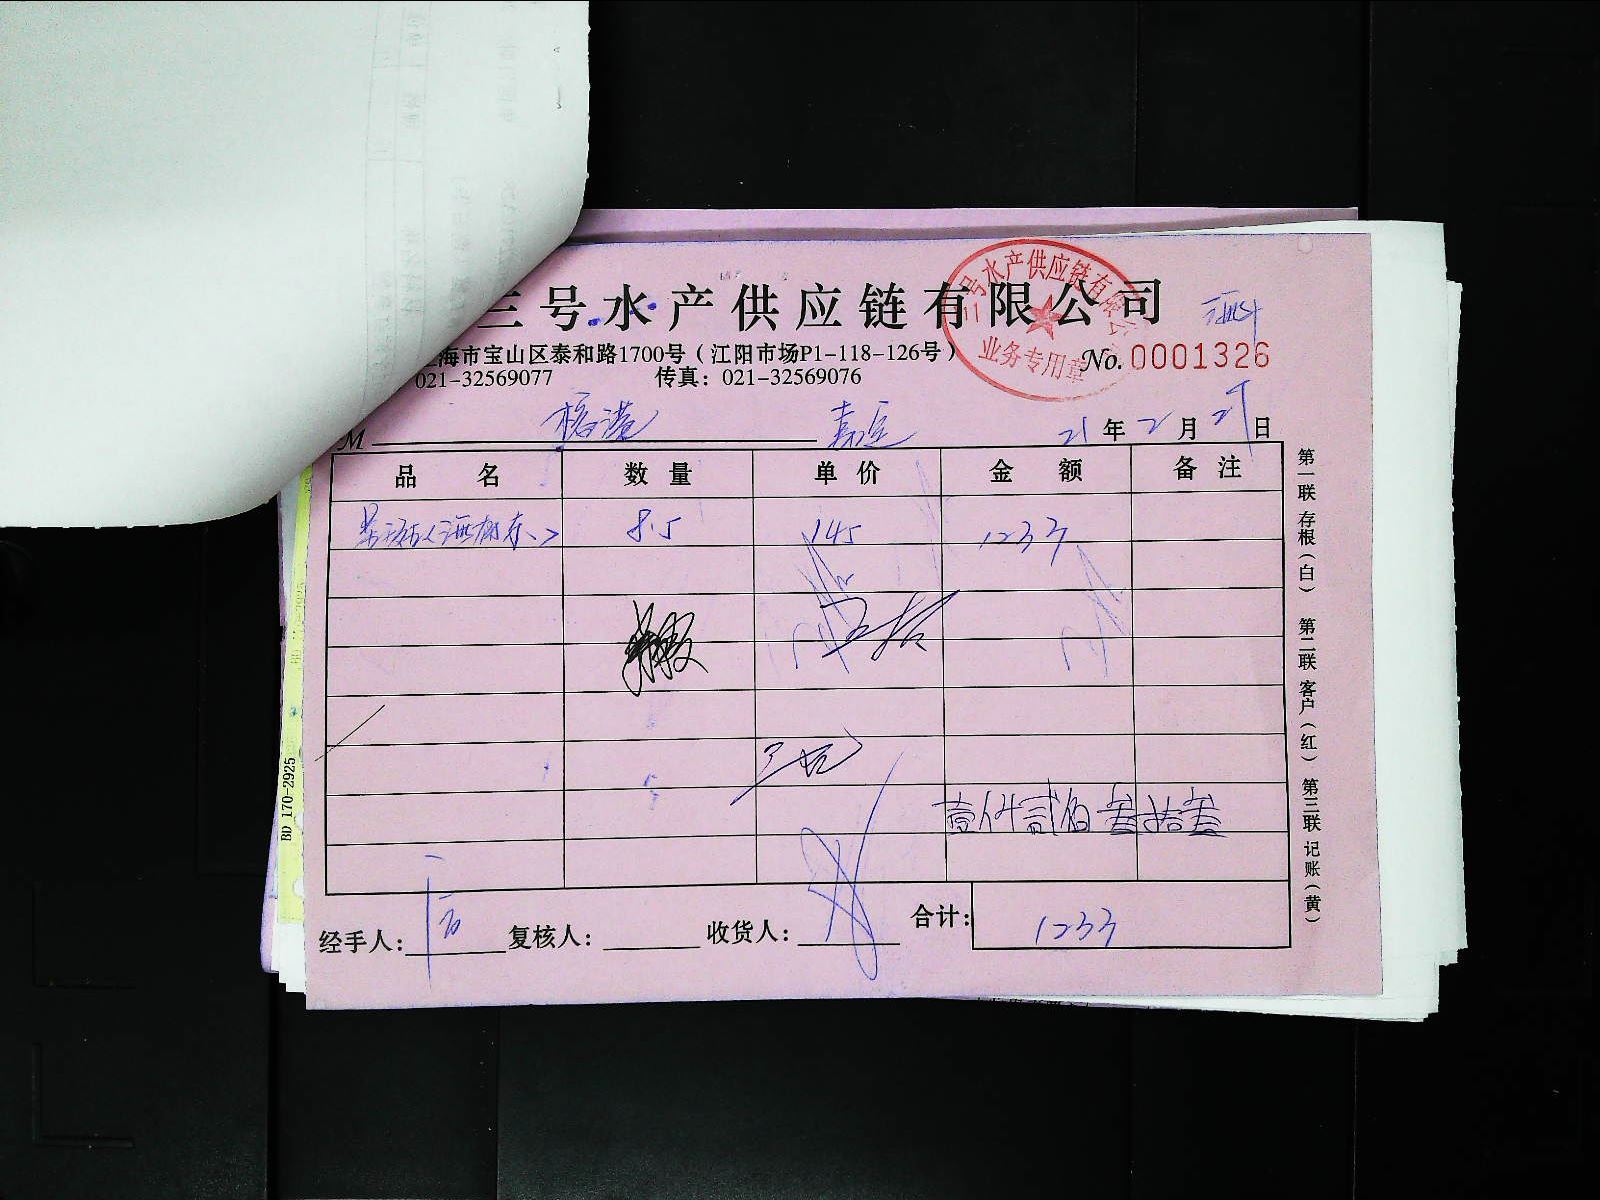 三号水产供应链有限公司
海市宝山区泰和路1700号（江阳市场P1-118-126号）
021-32569077 传真：021-32569076
三号水产供应链有限公
业务专用章
No. 0001326
M 嘉定 21年2月27日
品名 数量 单价 金额 备注
8.5 145 1233
壹仟贰佰叁拾叁
经手人： 复核人： 收货人： 合计： 1233
第一联 存根（白） 第二联 客户（红） 第三联 记账（黄）
BD 170-2925